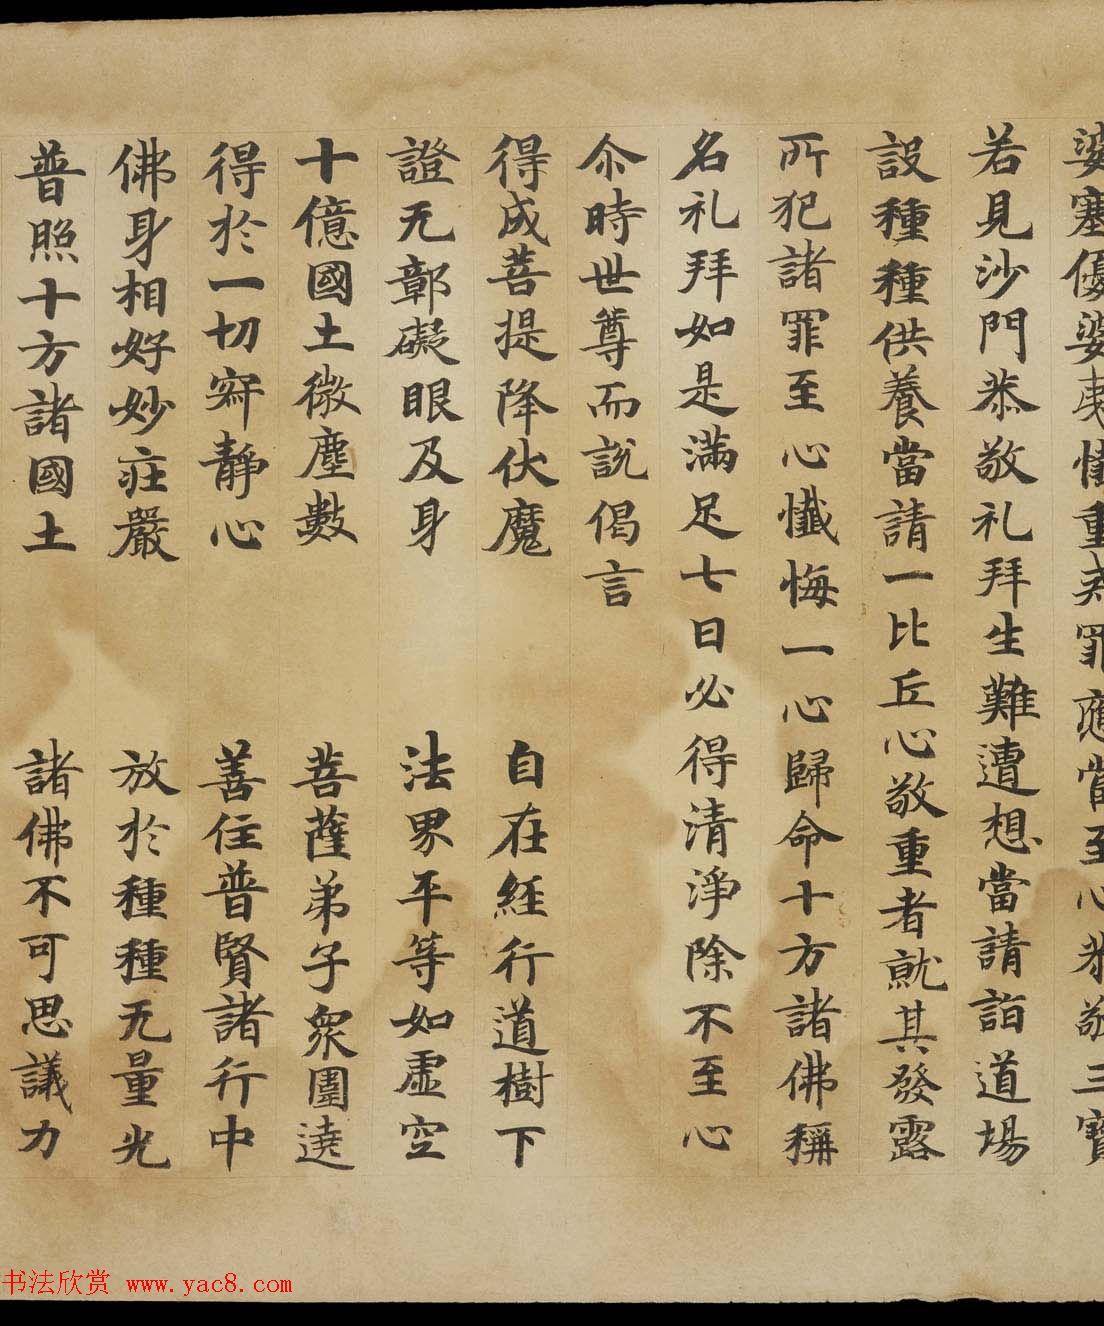 婆塞優婆夷懺重惡罪應當至心恭敬三寶
若見沙門恭敬礼拜生難遭想當請詣道場
設種種供養當請一比丘心敬重者就其發露
所犯諸罪至心懺悔一心歸命十方諸佛稱
名礼拜如是滿足七日必得清淨除不至心
尒時世尊而説偈言
得成菩提降伏魔 自在經行道樹下
證无鄣礙眼及身 法界平等如虛空
十億國土微塵數 菩薩弟子衆圍遶
得於一切寂靜心 善住普賢諸行中
佛身相好妙莊嚴 放於種種无量光
普照十方諸國土 諸佛不可思議力
书法欣赏 www.yac8.com